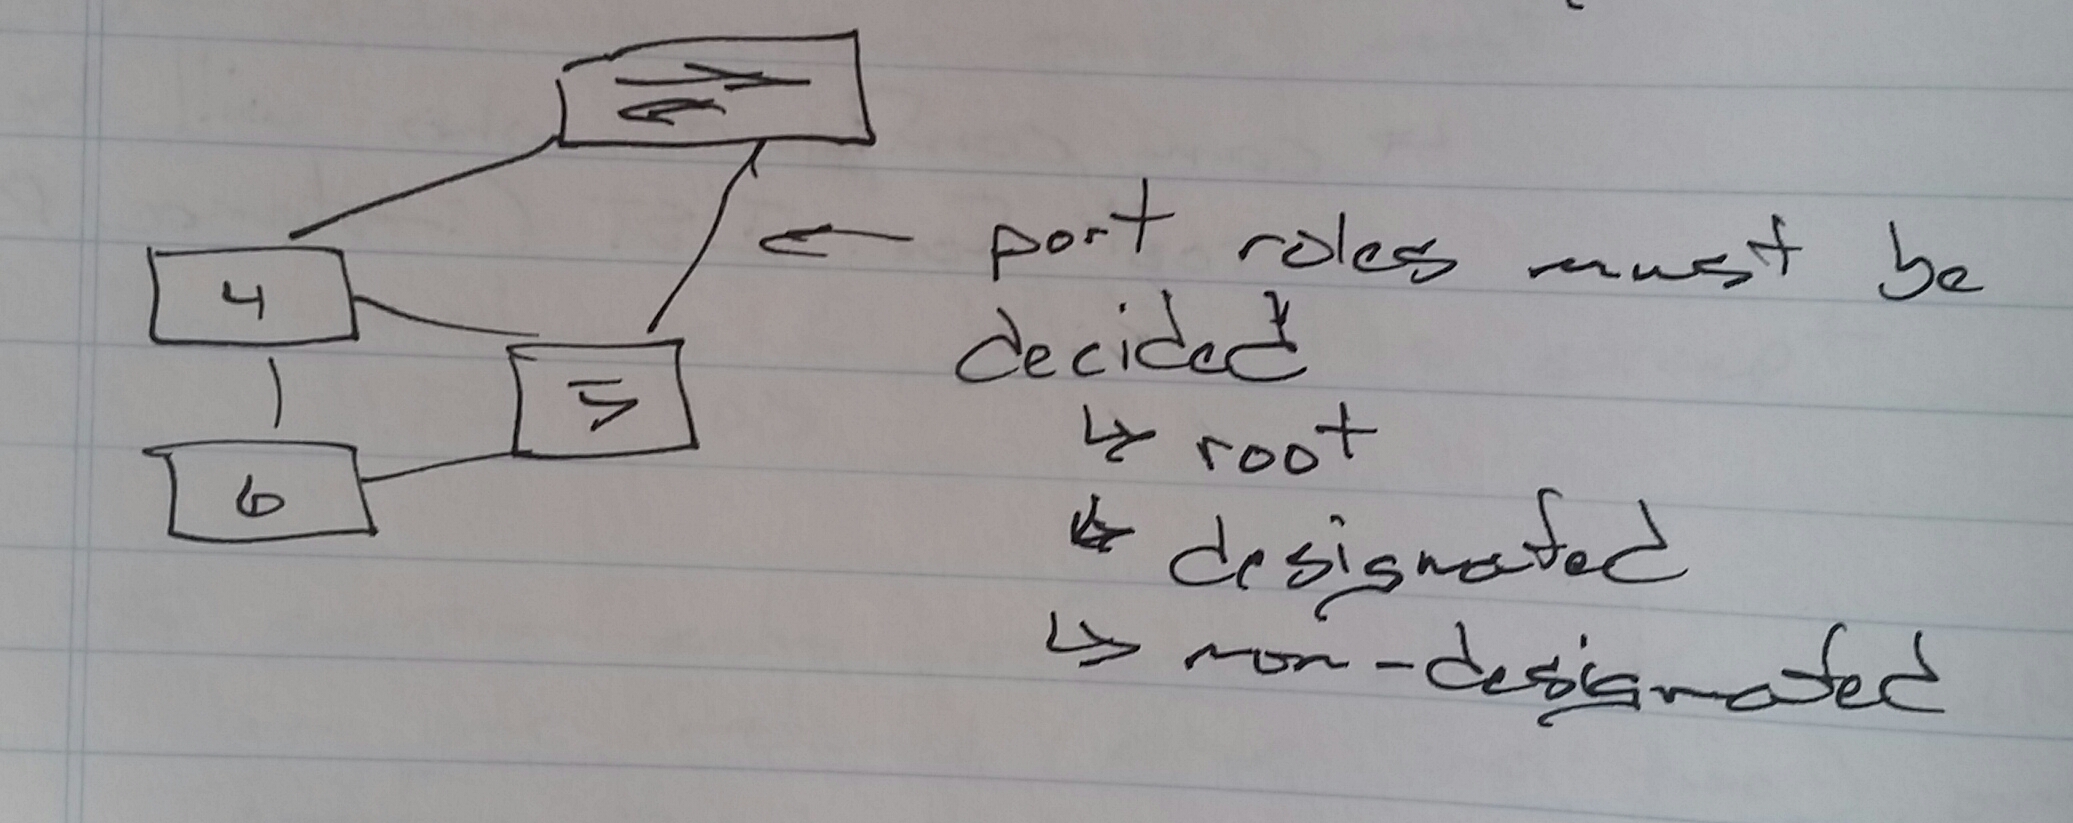 4
5
6
← port roles must be
decided
↳ root
↳ designated
↳ non-designated